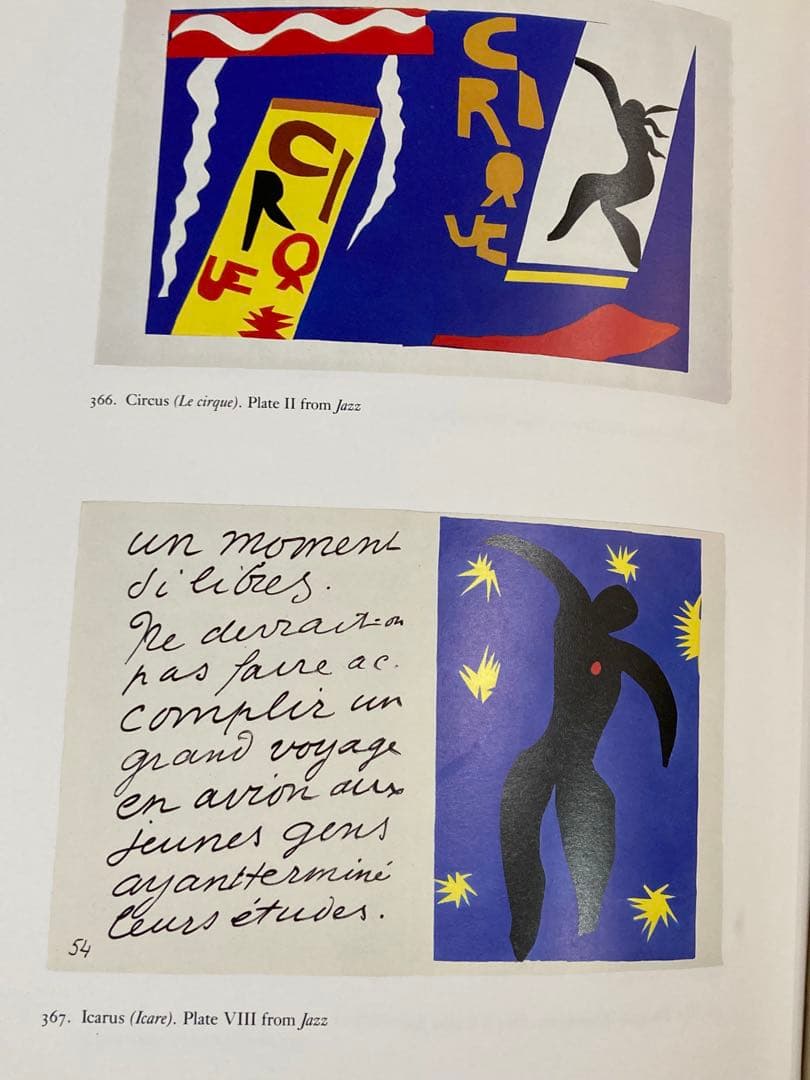 CIRQUE
CIRQUE
366. Circus (Le cirque). Plate II from Jazz
un moment
si libres.
Ne devrait-on
pas faire ac-
complir un
grand voyage
en avion aux
jeunes gens
ayant terminé
leurs études.
54
367. Icarus (Icare). Plate VIII from Jazz